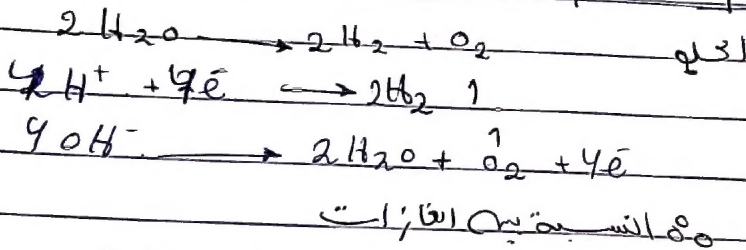 2H₂O → 2H₂ + O₂
4H⁺ + 4ē → 2H₂ ↑
4OH⁻ → 2H₂O + O₂ ↑ + 4ē
∴ النسبة بين الغازات